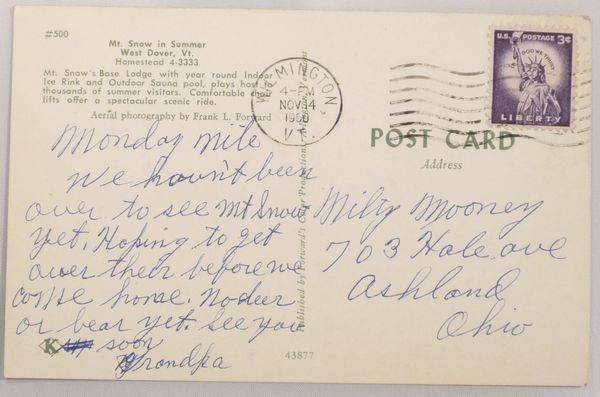 #500
Mt. Snow in Summer
West Dover, Vt.
Homestead 4-3333
Mt. Snow's Base Lodge with year round Indoor
Ice Rink and Outdoor Sauna pool, plays host to
thousands of summer visitors. Comfortable chair
lifts offer a spectacular scenic ride.
Aerial photography by Frank L. Forward
WILMINGTON,
4-PM
NOV 14
1960
VT.
U.S. POSTAGE 3¢
IN GOD WE TRUST
LIBERTY
POST CARD
Address
Monday nite
We hav'nt been
over to see Mt Snow
yet. Hoping to get
over their before we
come home. No deer
or bear yet. See you
soon
Grandpa
Milty Mooney
703 Hale ave
Ashland
Ohio
Published by Forward's Color Productions,
K
43877